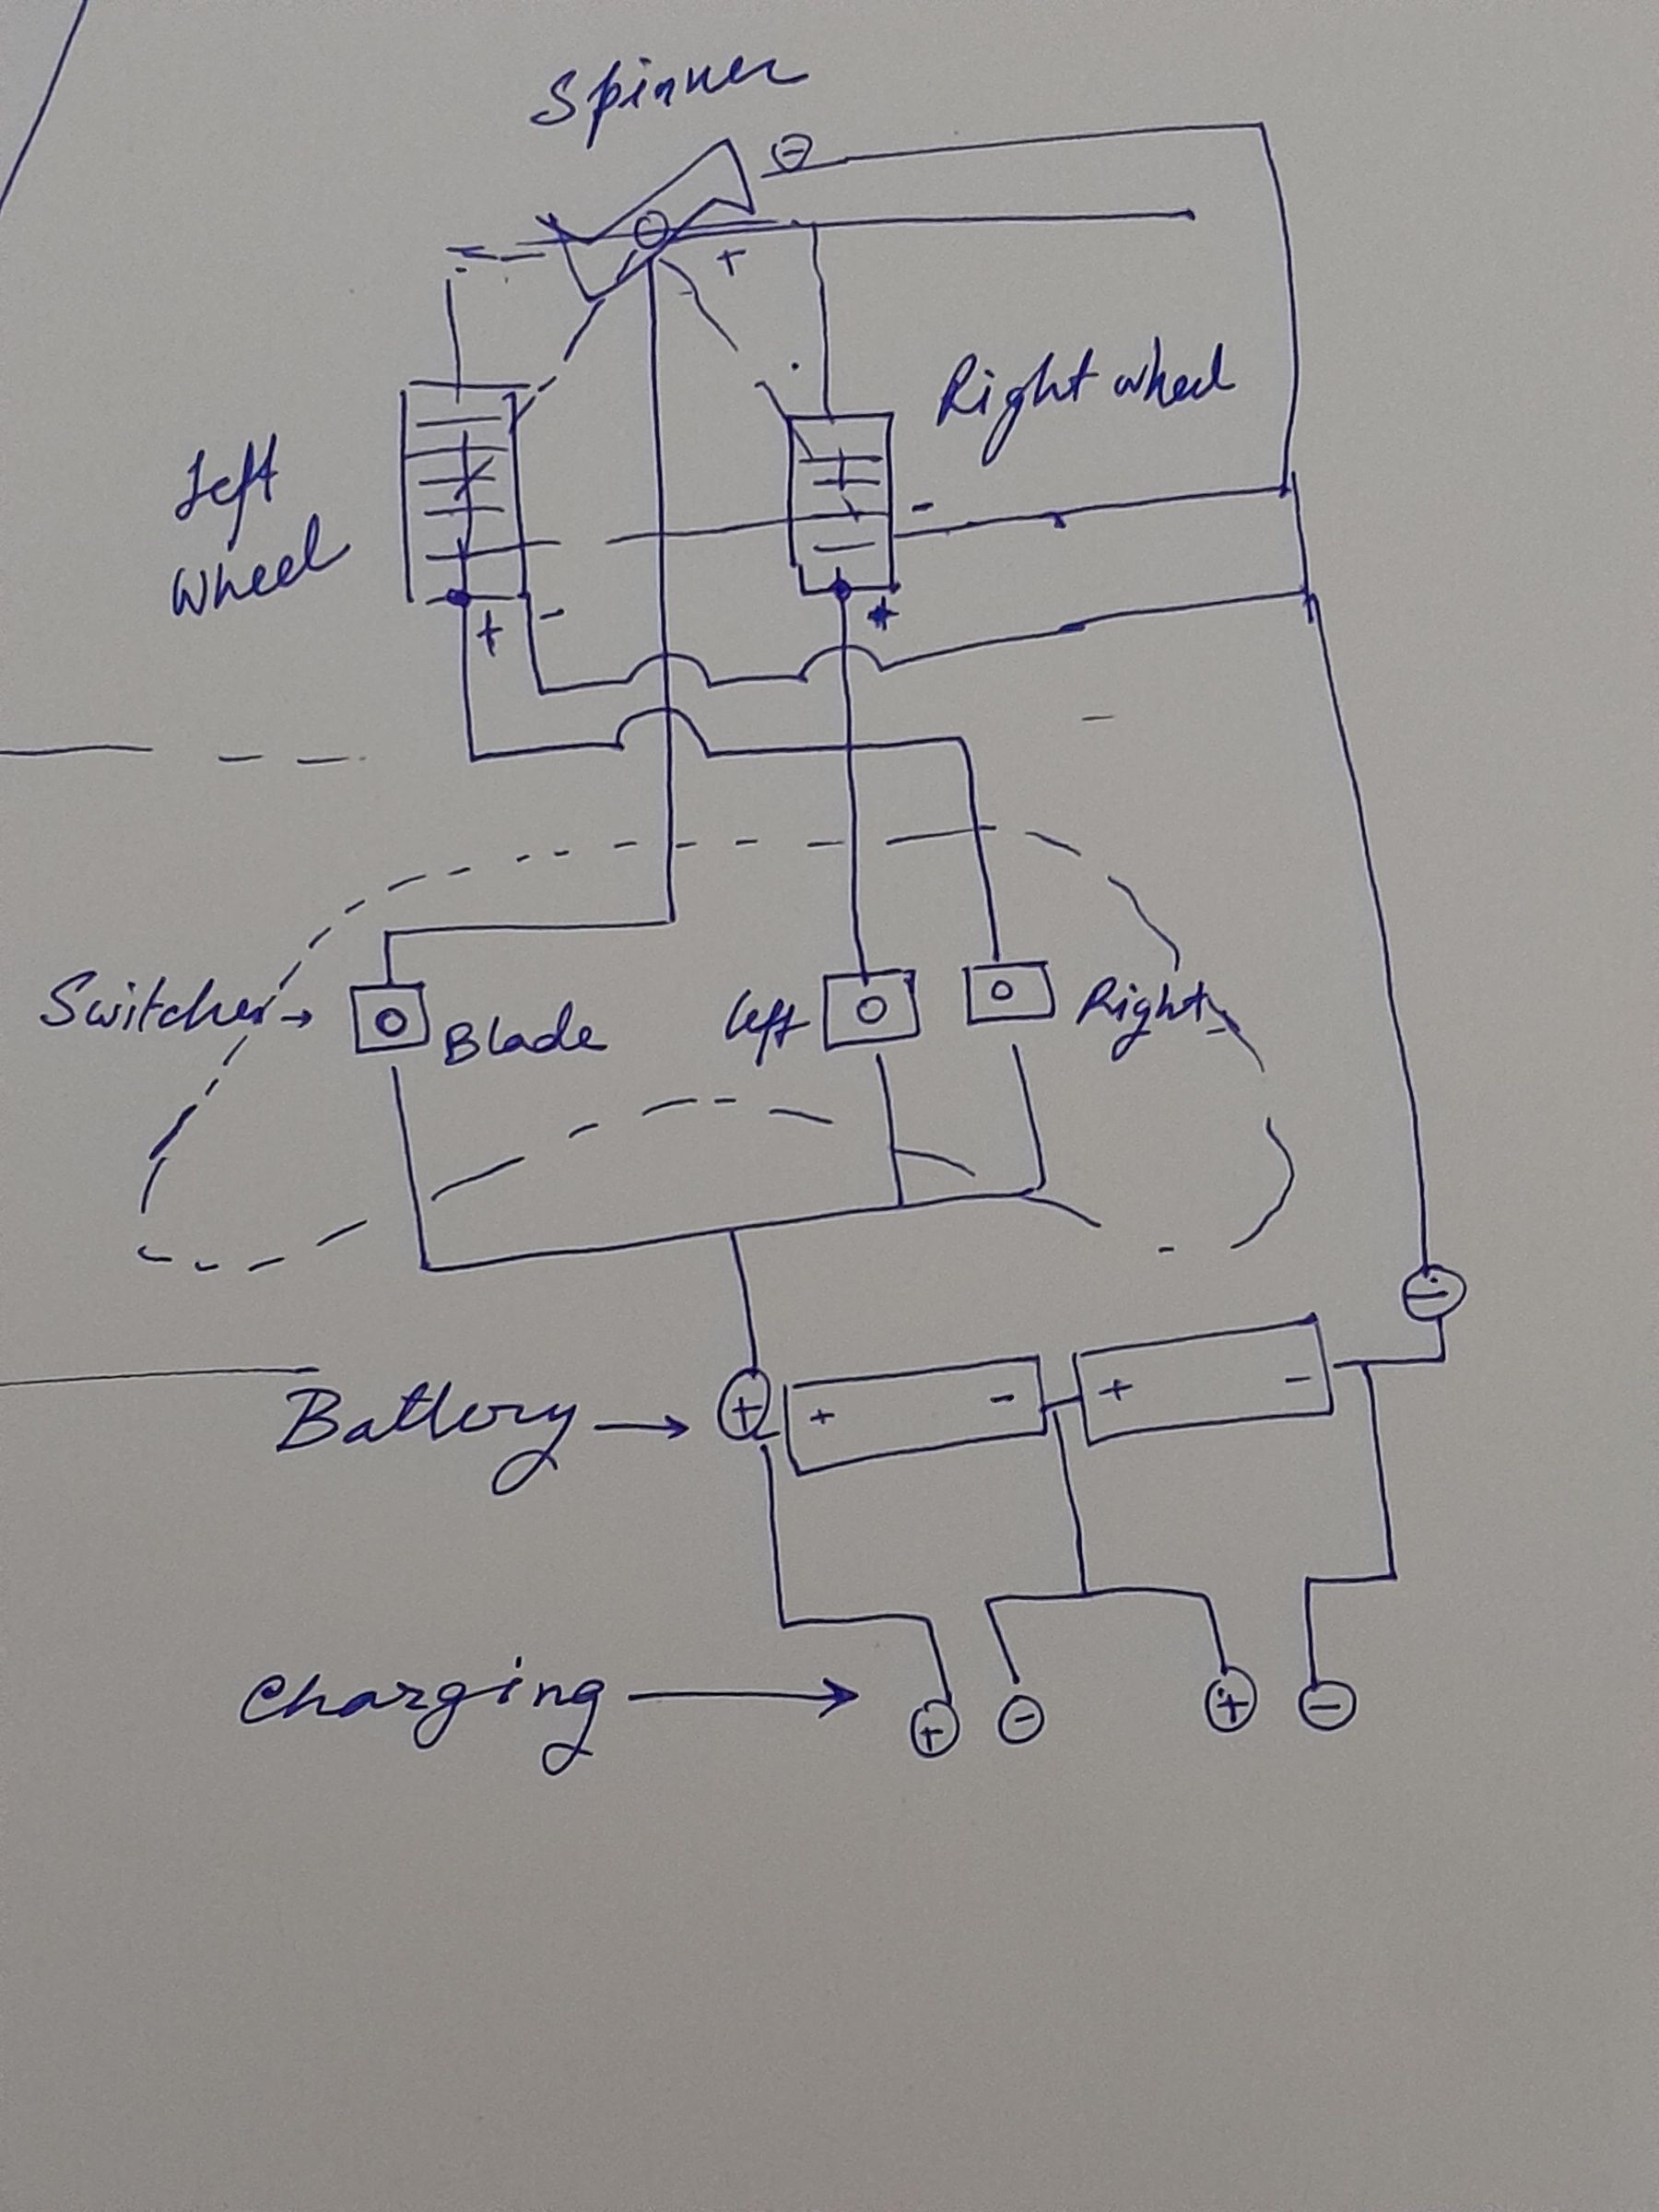 Spinner
⊖
+
Right wheel
Left
wheel
-
+ -
+
Switches →
Blade
left
Right
⊖
Battery →
⊕
+ -
+ -
Charging →
⊕ ⊖ ⊕ ⊖